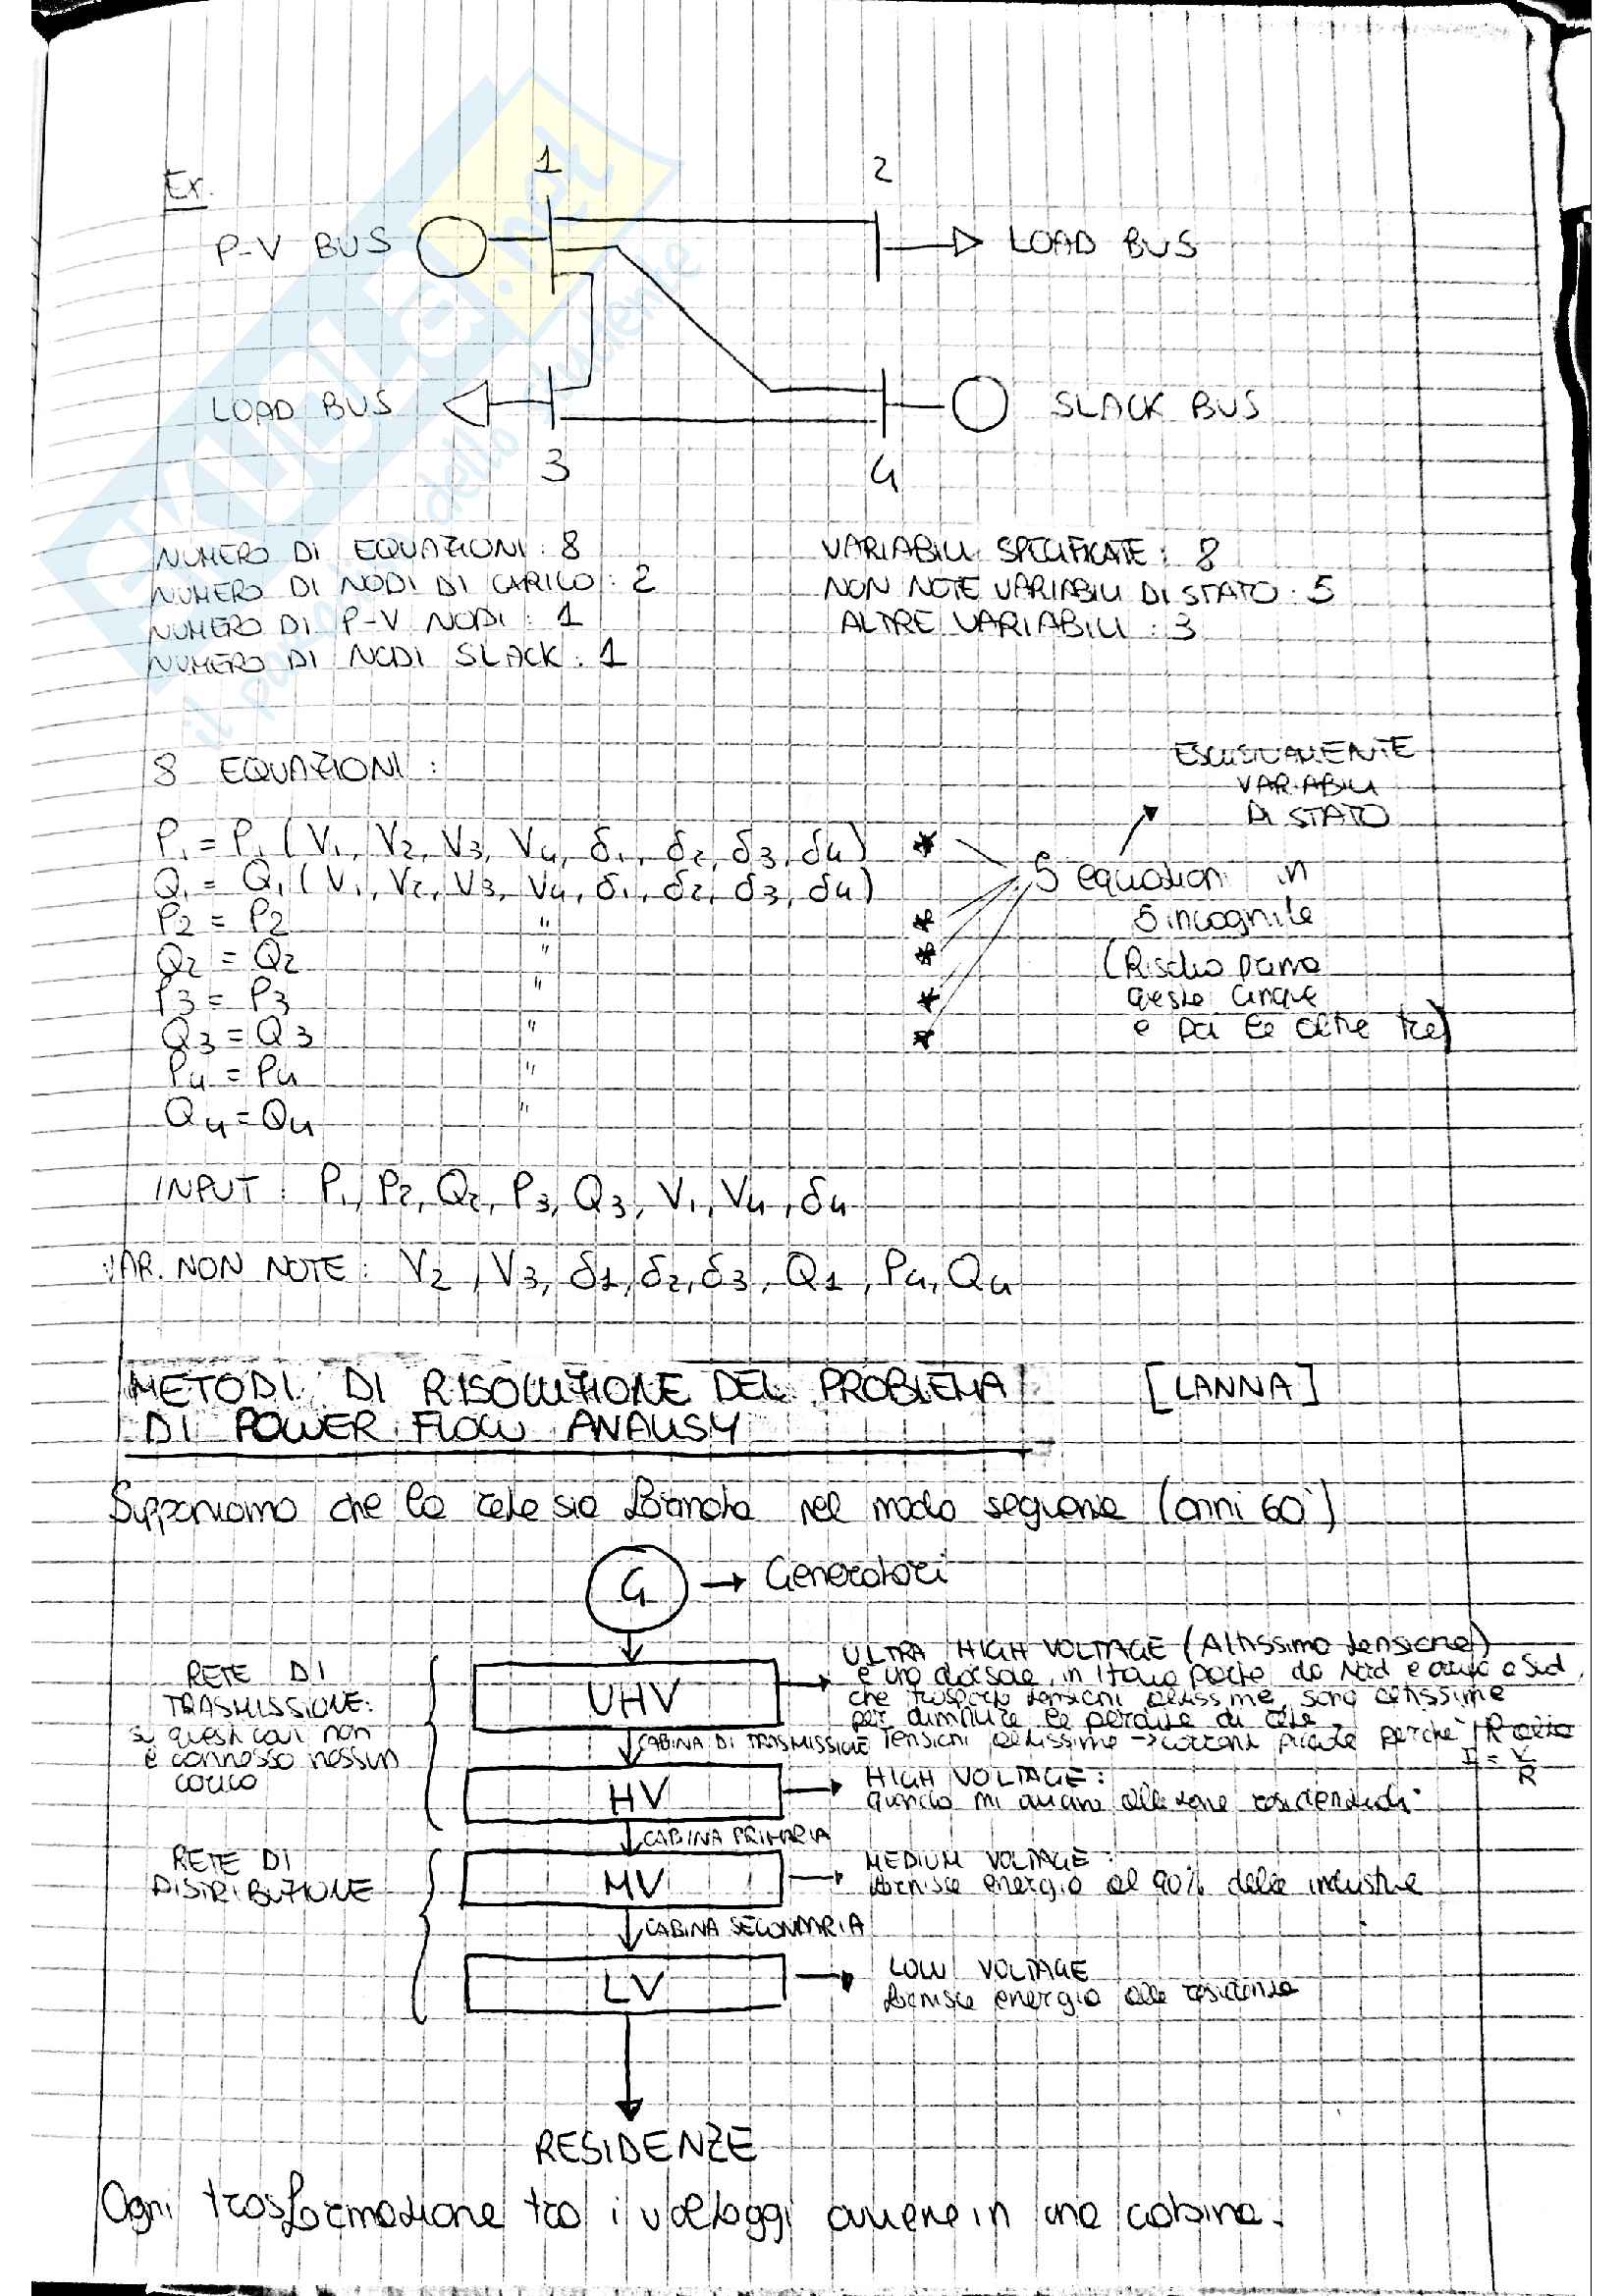 Ex.
1
2
P-V BUS
LOAD BUS
LOAD BUS
SLACK BUS
3
4
NUMERO DI EQUAZIONI: 8
NUMERO DI NODI DI CARICO: 2
NUMERO DI P-V NODI: 1
NUMERO DI NODI SLACK: 1
VARIABILI SPECIFICATE: 8
NON NOTE VARIABILI DI STATO: 5
ALTRE VARIABILI: 3
8 EQUAZIONI:
ESCLUSIVAMENTE
VARIABILI
DI STATO
P₁ = P₁ (V₁, V₂, V₃, V₄, δ₁, δ₂, δ₃, δ₄) *
Q₁ = Q₁ (V₁, V₂, V₃, V₄, δ₁, δ₂, δ₃, δ₄)
P₂ = P₂ " *
Q₂ = Q₂ " *
P₃ = P₃ " *
Q₃ = Q₃ " *
P₄ = P₄ "
Q₄ = Q₄ "
5 equazioni in
5 incognite
(Risolvo prima
queste cinque
e poi le altre tre)
INPUT: P₁, P₂, Q₂, P₃, Q₃, V₁, V₄, δ₄
VAR. NON NOTE: V₂, V₃, δ1, δ₂, δ₃, Q1, P₄, Q₄
METODI DI RISOLUZIONE DEL PROBLEMA [LANNA]
DI POWER FLOW ANALISY
Supponiamo che la rete sia formata nel modo seguente (anni 60')
G → Generatori
RETE DI
TRASMISSIONE:
a questi cavi non
è connesso nessun
carico
UHV
ULTRA HIGH VOLTAGE (Altissima tensione)
è una dorsale, in Italia parte da Nord e arriva a Sud,
che trasporta tensioni altissime, sono altissime
per diminuire le perdite di rete
CABINA DI TRASMISSIONE
Tensioni altissime → correnti piccole perché R alta
I = V/R
HV
HIGH VOLTAGE:
quando mi avvicino alle zone residenziali
CABINA PRIMARIA
RETE DI
DISTRIBUZIONE
MV
MEDIUM VOLTAGE:
fornisce energia al 90% delle industrie
CABINA SECONDARIA
LV
LOW VOLTAGE
fornisce energia alle residenze
RESIDENZE
Ogni trasformazione tra i voltaggi avviene in una cabina.
SKUOLA.net
il paradiso dello studente